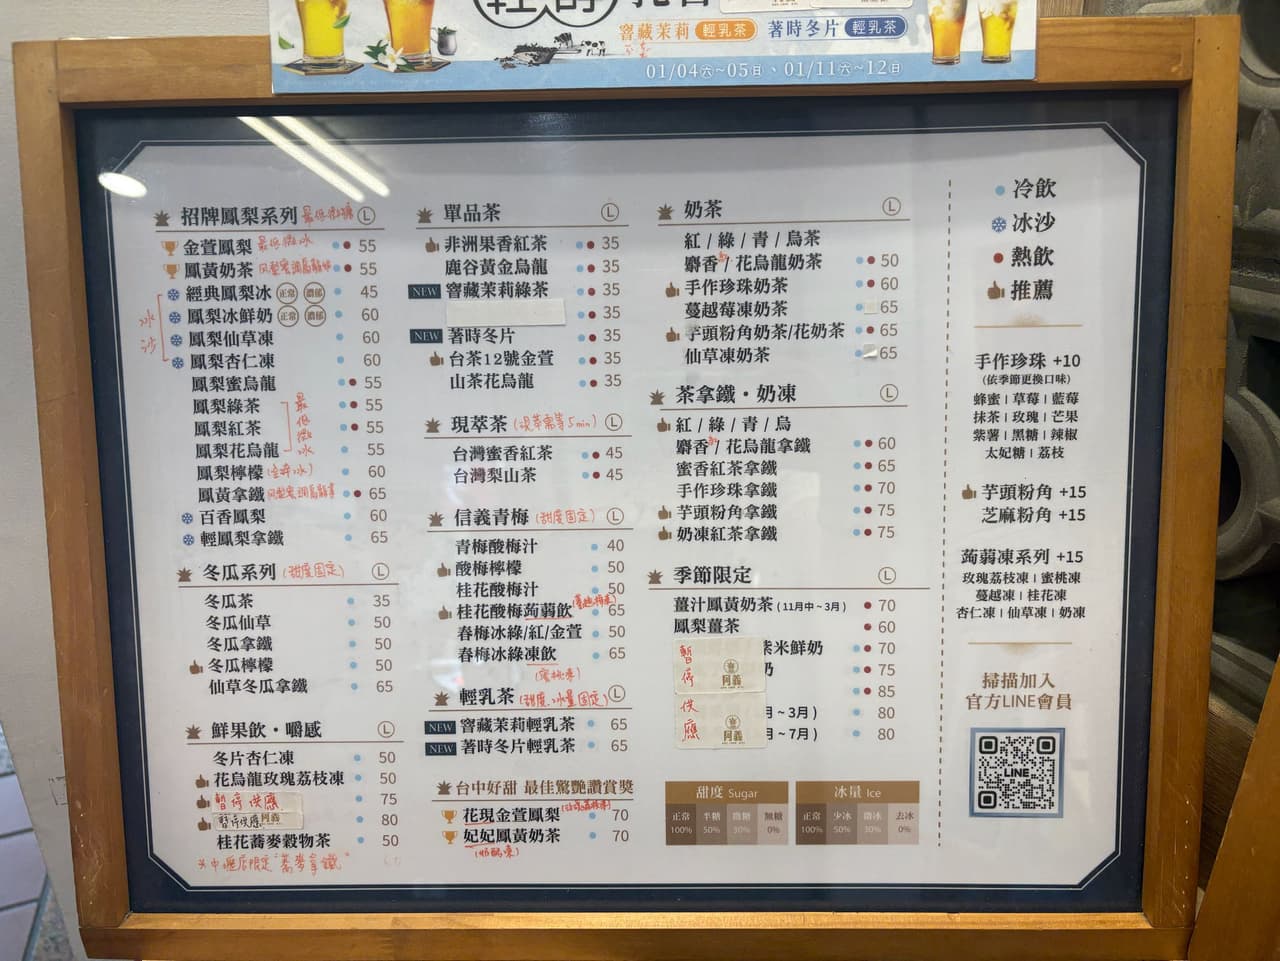 窨藏茉莉 輕乳茶 著時冬片 輕乳茶
01/04六~05日、01/11六~12日
招牌鳳梨系列 最低微糖 L
金萱鳳梨 最低微冰 55
鳳黃奶茶 55
經典鳳梨冰 正常 濃郁 45
鳳梨冰鮮奶 正常 濃郁 60
鳳梨仙草凍 60
鳳梨杏仁凍 60
冰沙
鳳梨蜜烏龍 55
鳳梨綠茶 55
鳳梨紅茶 55
鳳梨花烏龍 55
最低微冰
鳳梨檸檬 60
鳳黃拿鐵 65
百香鳳梨 60
輕鳳梨拿鐵 65
冬瓜系列 (甜度固定) L
冬瓜茶 35
冬瓜仙草 50
冬瓜拿鐵 50
冬瓜檸檬 50
仙草冬瓜拿鐵 65
鮮果飲・嚼感 L
冬片杏仁凍 50
花烏龍玫瑰荔枝凍 50
暫停供應 75
暫停供應 80
桂花蕎麥穀物茶 50
單品茶 L
非洲果香紅茶 35
鹿谷黃金烏龍 35
NEW 窨藏茉莉綠茶 35
35
NEW 著時冬片 35
台茶12號金萱 35
山茶花烏龍 35
現萃茶 (現萃需等5min) L
台灣蜜香紅茶 45
台灣梨山茶 45
信義青梅 (甜度固定) L
青梅酸梅汁 40
酸梅檸檬 50
桂花酸梅汁 50
桂花酸梅蒟蒻飲 65
春梅冰綠/紅/金萱 50
春梅冰綠凍飲 65
(蜜桃凍)
輕乳茶 (甜度、冰量固定) L
NEW 窨藏茉莉輕乳茶 65
NEW 著時冬片輕乳茶 65
台中好甜 最佳驚艷讚賞獎
花現金萱鳳梨 70
妃妃鳳黃奶茶 70
奶茶 L
紅 / 綠 / 青 / 烏茶
麝香 / 花烏龍奶茶 50
手作珍珠奶茶 60
蔓越莓凍奶茶 65
芋頭粉角奶茶/花奶茶 65
仙草凍奶茶 65
茶拿鐵・奶凍 L
紅 / 綠 / 青 / 烏
麝香 / 花烏龍拿鐵 60
蜜香紅茶拿鐵 65
手作珍珠拿鐵 70
芋頭粉角拿鐵 75
奶凍紅茶拿鐵 75
季節限定 L
薑汁鳳黃奶茶 (11月中~3月) 70
鳳梨薑茶 60
紫米鮮奶 70
奶 75
85
月~3月) 80
月~7月) 80
暫停
供應
阿義
阿義
甜度 Sugar
正常 半糖 微糖 無糖
100% 50% 30% 0%
冰量 Ice
正常 少冰 微冰 去冰
100% 50% 30% 0%
冷飲
冰沙
熱飲
推薦
手作珍珠 +10
(依季節更換口味)
蜂蜜 | 草莓 | 藍莓
抹茶 | 玫瑰 | 芒果
紫薯 | 黑糖 | 辣椒
太妃糖 | 荔枝
芋頭粉角 +15
芝麻粉角 +15
蒟蒻凍系列 +15
玫瑰荔枝凍 | 蜜桃凍
蔓越凍 | 桂花凍
杏仁凍 | 仙草凍 | 奶凍
掃描加入
官方LINE會員
LINE